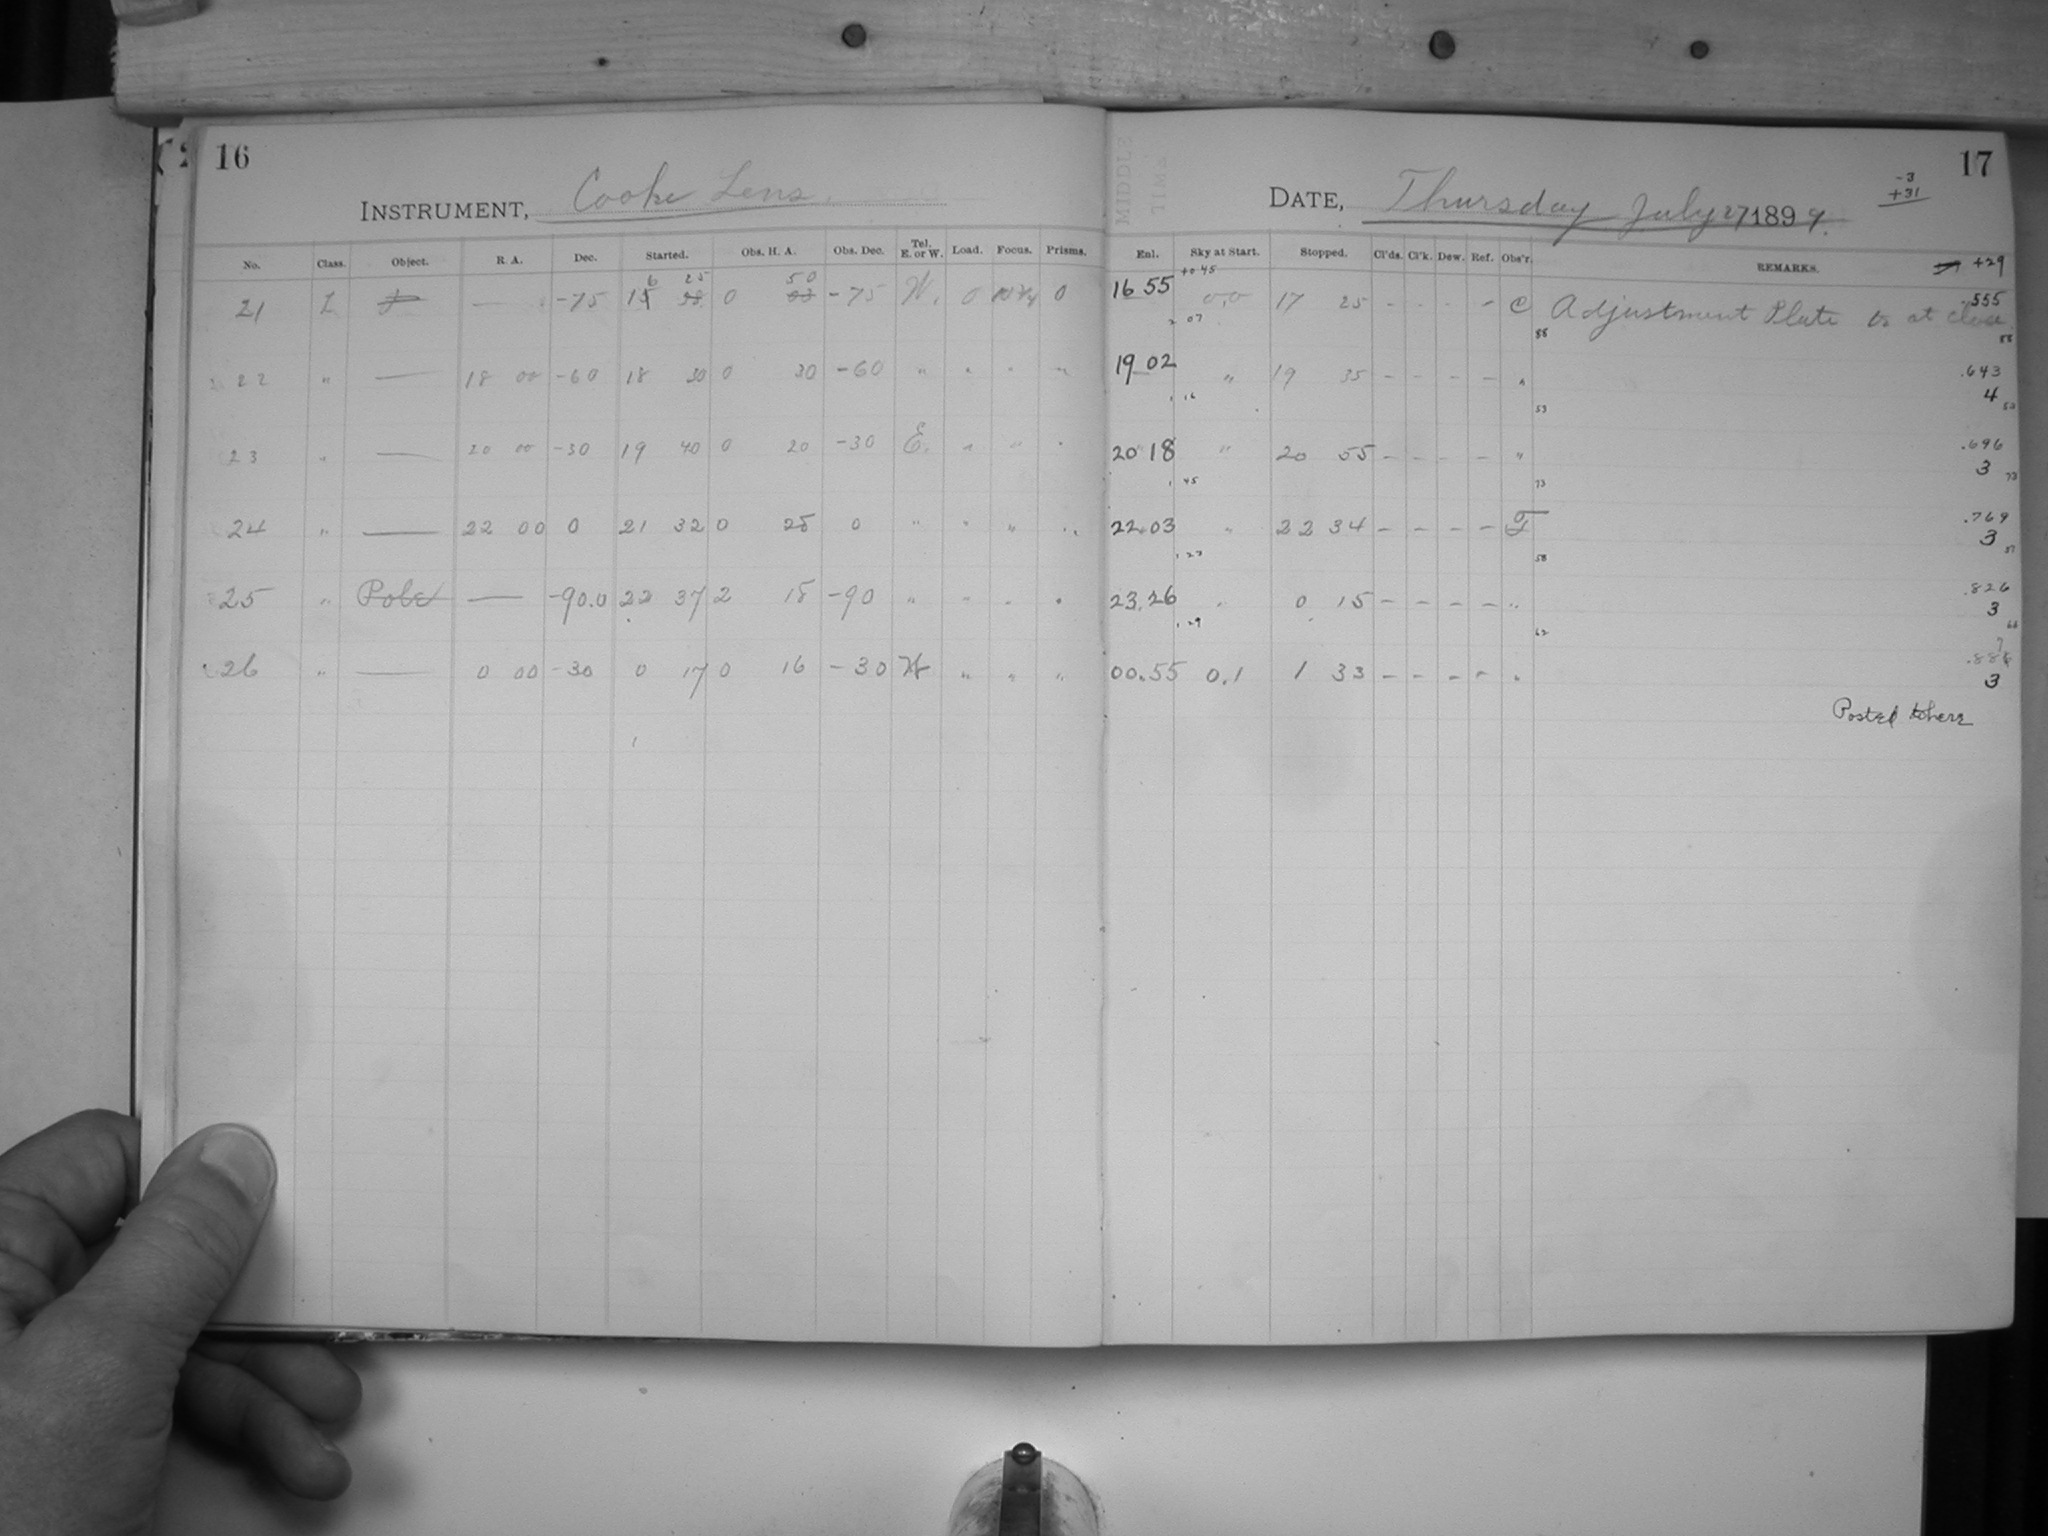 16
INSTRUMENT, Cooke Lens.
No. Class. Object. R. A. Dec. Started. Obs. H. A. Obs. Dec. Tel. E. or W. Load. Focus. Prisms.
6 25 50
21 L — -75 15 0 -75 W. 0 0
22 " — 18 00 -60 18 30 0 30 -60 " " " "
23 " — 20 00 -30 19 40 0 20 -30 E. " " "
24 " — 22 00 0 21 32 0 25 0 " " " "
25 " Pole — -90.0 22 37 2 18 -90 " " " "
26 " — 0 00 -30 0 17 0 16 -30 W " " "
17
MIDDLE TIME
-3
+31
DATE, Thursday July 27 1899.
Enl. Sky at Start. Stopped. Cl'ds. Cl'k. Dew. Ref. Obs'r. REMARKS. +29
+0 45
16 55 0,0 17 25 - - - - C Adjustment Plate to at close .555
2 07 88 88
19 02 " 19 35 - - - - " .643
4
1 16 53 53
20 18 " 20 55 - - - - " .696
3
1 45 73 73
22.03 " 22 34 - - - - F .769
3
1 23 58 57
23.26 " 0 15 - - - - " .826
3
1 29 62
00.55 0.1 1 33 - - - - "
3
Posted to here